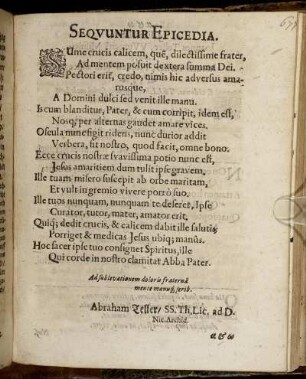 SEQVVNTUR EPICEDIA.
SUme crucis calicem, quē, dilectissime frater,
Ad mentem posuit dextera summa Dei.
Pectori erit, credo, nimis hic adversus ama-
rusque,
A Domini dulci sed venit ille manu.
Is cum blanditur, Pater, & cum corripit, idem est,
Nosq; per alternas gaudet amare vices.
Oscula nunc figit ridens, nunc durior addit
Verbera, sit nostro, quod facit, omne bono.
Ecce crucis nostræ svavissima potio nunc est,
Jesus amaritiem dum tulit ipse gravem,
Ille tuam misero suscepit ab orbe maritam,
Et vult in gremio vivere porrò suo.
Ille tuos nunquam, nunquam te deseret, Ipse
Curator, tutor, mater, amator erit.
Quiq; dedit crucis, & calicem dabit ille salutis;
Porriget & medicas Jesus ubiq; manus.
Hoc sacer ipse tuo consignet Spiritus, ille
Qui corde in nostro clamitat Abba Pater.
Ad sublevationem doloris fraternâ
mente manuq; scrib.
Abraham Teller/ SS. Th. Lic. ad D.
Nic. Archid.